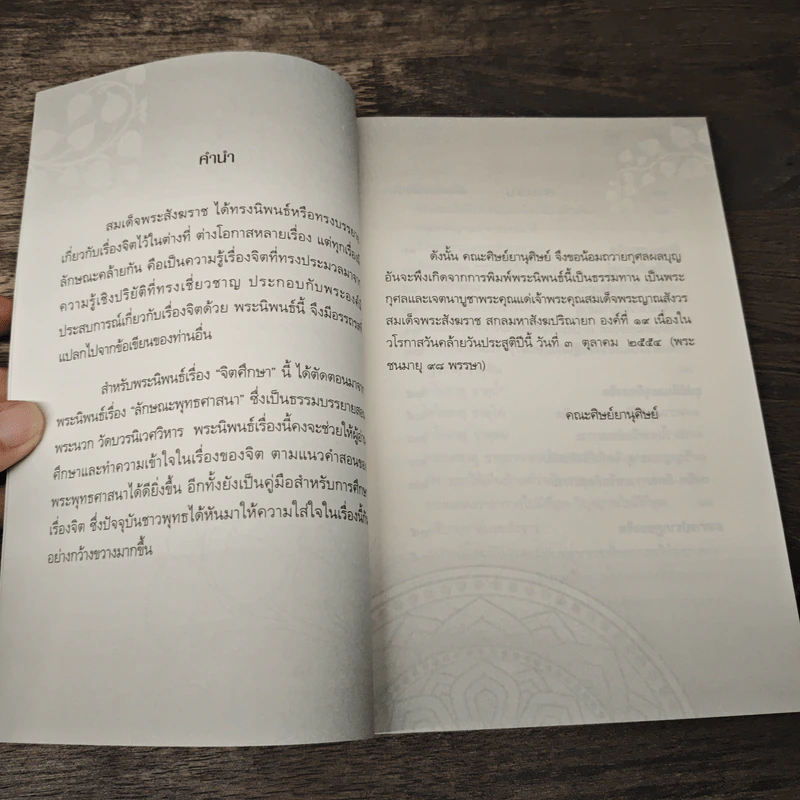 คำนำ
สมเด็จพระสังฆราช ได้ทรงนิพนธ์หรือทรงบรรยาย
เกี่ยวกับเรื่องจิตไว้ในต่างที่ ต่างโอกาสหลายเรื่อง แต่ทุกเรื่อง
ลักษณะคล้ายกัน คือเป็นความรู้เรื่องจิตที่ทรงประมวลมาจาก
ความรู้เชิงปริยัติที่ทรงเชี่ยวชาญ ประกอบกับพระองค์
ประสบการณ์เกี่ยวกับเรื่องจิตด้วย พระนิพนธ์นี้ จึงมีอรรถรส
แปลกไปจากข้อเขียนของท่านอื่น
สำหรับพระนิพนธ์เรื่อง “จิตศึกษา” นี้ ได้ตัดตอนมาจาก
พระนิพนธ์เรื่อง “ลักษณะพุทธศาสนา” ซึ่งเป็นธรรมบรรยายสอน
พระนวก วัดบวรนิเวศวิหาร พระนิพนธ์เรื่องนี้คงจะช่วยให้ผู้อ่าน
ศึกษาและทำความเข้าใจในเรื่องของจิต ตามแนวคำสอนของ
พระพุทธศาสนาได้ดียิ่งขึ้น อีกทั้งยังเป็นคู่มือสำหรับการศึกษา
เรื่องจิต ซึ่งปัจจุบันชาวพุทธได้หันมาให้ความใส่ใจในเรื่องนี้กัน
อย่างกว้างขวางมากขึ้น
ดังนั้น คณะศิษย์ยานุศิษย์ จึงขอน้อมถวายกุศลผลบุญ
อันจะพึงเกิดจากการพิมพ์พระนิพนธ์นี้เป็นธรรมทาน เป็นพระ
กุศลและเจตนาบูชาพระคุณแด่เจ้าพระคุณสมเด็จพระญาณสังวร
สมเด็จพระสังฆราช สกลมหาสังฆปริณายก องค์ที่ ๑๙ เนื่องใน
วโรกาสวันคล้ายวันประสูติปีนี้ วันที่ ๓ ตุลาคม ๒๕๕๔ (พระ
ชนมายุ ๙๘ พรรษา)
คณะศิษย์ยานุศิษย์